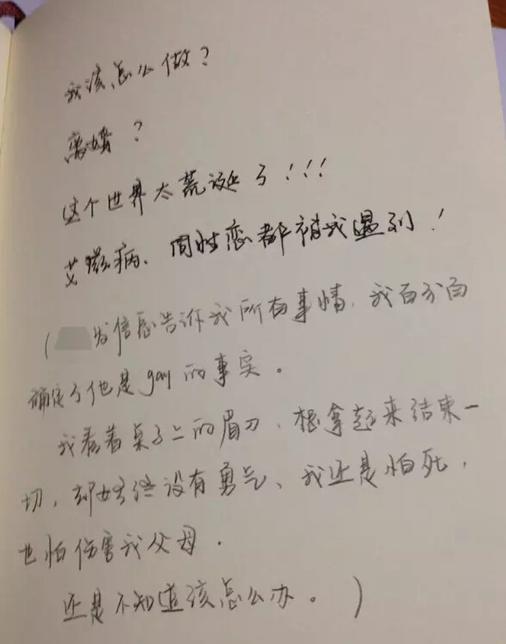 我该怎么做？
离婚？
这个世界太荒诞了！！！
艾滋病、同性恋都被我遇到！
（发信息告诉我所有事情，我百分百
确定了他是gay的事实。
我看着桌子上的眉刀，想拿起来结束一
切，却始终没有勇气、我还是怕死，
也怕伤害我父母．
还是不知道该怎么办。）